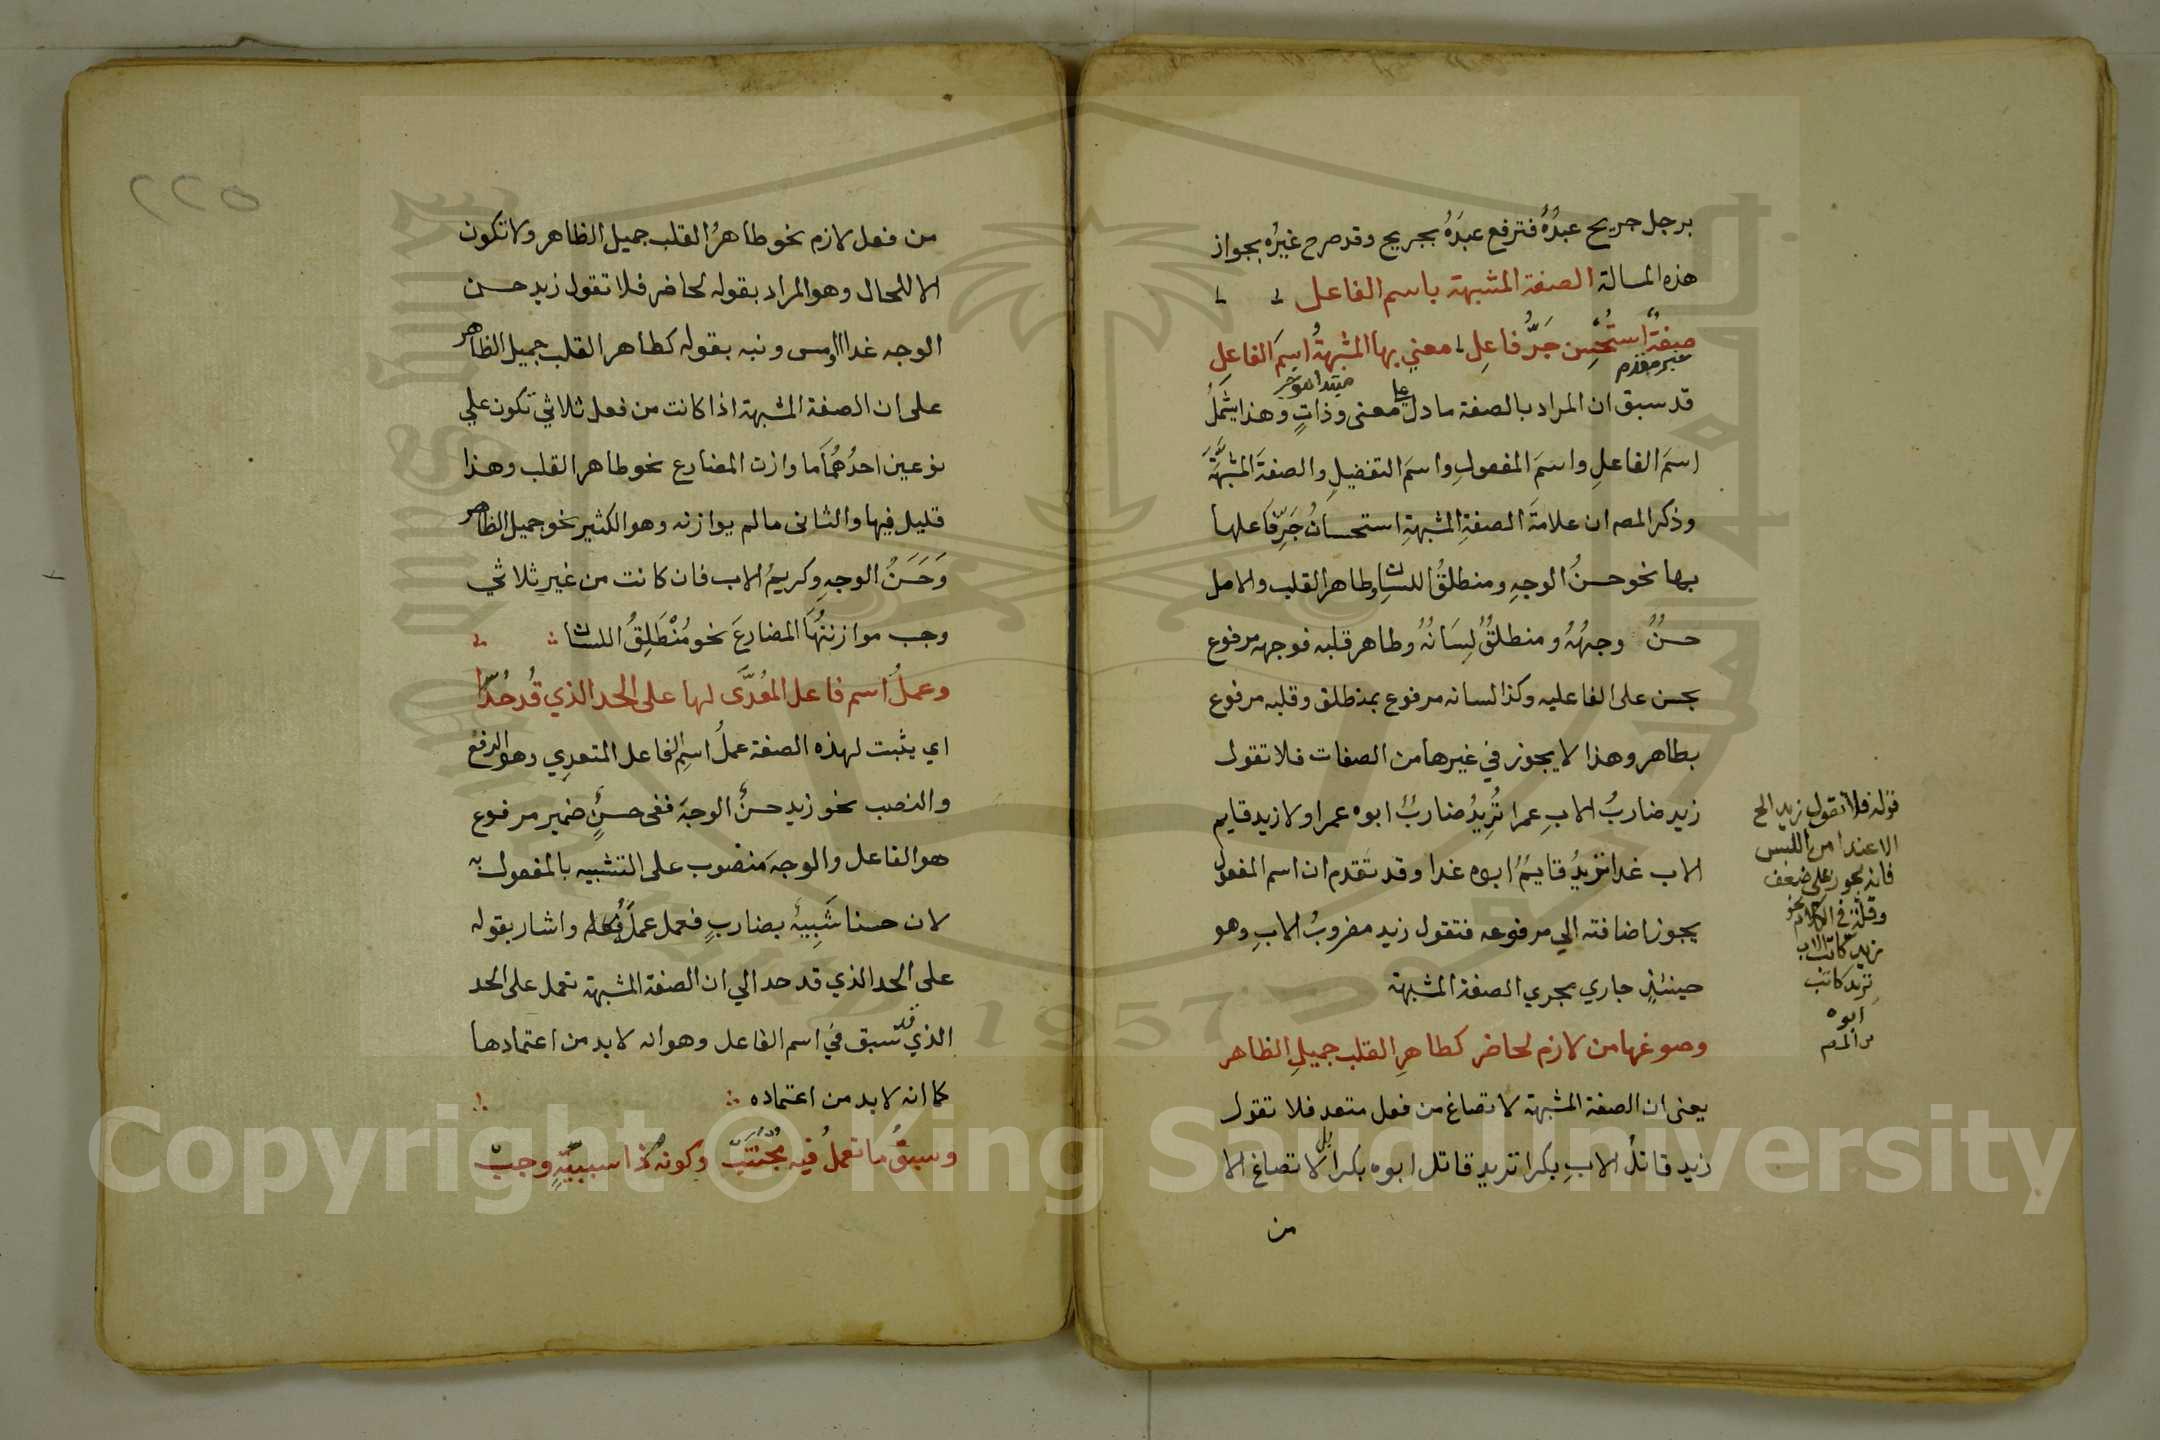 برجل جريح عبدُهُ فترفع عبدَهُ بجريح وقد صرح غيرُه بجواز
هذه المسالة الصفة المشبهة باسم الفاعل
صفةٌ استُحْسِن جَرُّ فاعِلِ معني بها المشبهةُ اسمَ الفاعِلِ
خبر مقدم
مبتدا مؤخر
قد سبق ان المراد بالصفة ما دل على معنى وذاتٍ وهذا يشملُ
اسمَ الفاعلِ واسمَ المفعولِ واسمَ التفضيلِ والصفةَ المشبهَّةَ
وذكر المص ان علامةَ الصفةِ المشبهةِ استحسانُ جَرِّ فاعلها
بها نحو حسنُ الوجهِ ومنطلقُ اللسانِ وطاهر القلب والاصل
حسنٌ وجهُهُ ومنطلقٌ لِسَانُهُ وطاهر قلبه فوجهه مرفوع
بحسن على الفاعليه وكذا لسانه مرفوع بمنطلق وقلبه مرفوع
بطاهر وهذا لا يجوز في غيرها من الصفات فلا تقول
زيد ضاربُ الابِ عمرا تُرِيدُ ضاربٌ ابوه عمرا ولا زيد قايم
الاب غدا تريدُ قايمٌ ابوه غدا وقد تقدم ان اسم المفعول
يجوز اضافته الي مرفوعه فتقول زيد مضروبُ الابِ وهو
حينئذٍ جاري مجري الصفة المشبهة
وصوغها من لازم لحاضر كطاهرِ القلب جميلِ الظاهر
يعنى ان الصفة المشبهة لا تصاغ من فعل متعد فلا تقول
زيد قاتلُ الابِ بكرا تريد قاتل ابوه بكرا بل لا تصاغ الا
من
قوله فلا تقول زيد الخ
الا عند امن اللبس
فانه يجوز على ضعف
وقلة في الكلام نحو
زيد كاتب الاب
تريد كاتب
ابوه
من المص
٢٢٥
من فعل لازم نحو طاهرُ القلب جميل الظاهر ولا تكون
الا للحال وهو المراد بقوله لحاضر فلا تقول زيد حسن
الوجه غدا او امس ونبه بقوله كطاهر القلب جميل الظاهر
على ان الصفة المشبهة اذا كانت من فعل ثلاثي تكون علي
نوعين احدُهُما ما وازن المضارع نحو طاهر القلب وهذا
قليل فيها والثانى ما لم يوازنه وهو الكثير نحو جميل الظاهر
وَحَسَنُ الوجهِ وكريمُ الاب فان كانت من غير ثلاثي
وجب موازنتُهَا المضارعَ نحو مُنْطَلِقُ اللسان
وعملُ اسم فاعل المُعَدَّى لها على الحد الذي قُد حُدَّا
اي يثبت لهذه الصفة عملُ اسمِ الفاعل المتعدِي وهو الرفع
والنصب نحو زيد حسنٌ الوجهَ ففى حسنٍ ضمير مرفوع
هو الفاعل والوجهَ منصوب على التشبيه بالمفعول به
لان حسنا شَبِيهٌ بضاربٍ فعمل عملَهُ واشار بقوله
على الحد الذي قد حد الي ان الصفة المشبهة تعمل على الحد
الذي قد سبق في اسم الفاعل وهو انه لا بد من اعتمادها
كما انه لا بد من اعتماده
وسبقُ ما تعملُ فيه مُجْتَنَبْ وكونُه ذا سببيَّةٍ وجبْ